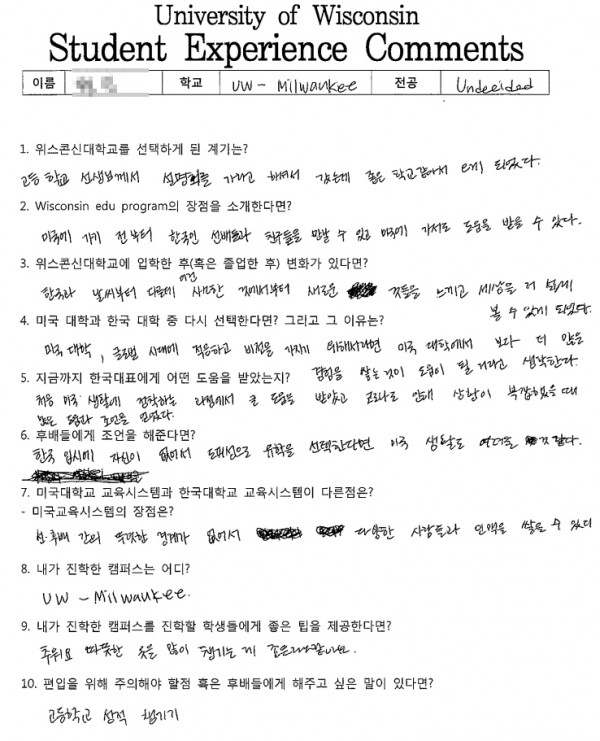 University of Wisconsin
Student Experience Comments
이름 학교 UW - Milwaukee 전공 Undecided
1. 위스콘신대학교를 선택하게 된 계기는?
고등학교 선생님께서 설명회를 가라고 해서 갔는데 좋은 학교같아서 오게 되었다.
2. Wisconsin edu program의 장점을 소개한다면?
미국에 가기 전부터 한국인 선배들과 친구들을 만날 수 있고 미국에 가서도 도움을 받을 수 있다.
3. 위스콘신대학교에 입학한 후(혹은 졸업한 후) 변화가 있다면?
한국과 날씨부터 다른데 이런 사소한 것에서부터 새로운 것들을 느끼고 세상을 더 넓게
볼 수 있게 되었다.
4. 미국 대학과 한국 대학 중 다시 선택한다면? 그리고 그 이유는?
미국 대학, 글로벌 시대에 적응하고 비전을 가지기 위해서라면 미국 대학에서 보다 더 많은
경험을 쌓는것이 도움이 될 거라고 생각한다.
5. 지금까지 한국대표에게 어떤 도움을 받았는지?
처음 미국 생활에 정착하는 과정에서 큰 도움을 받았고 코로나로 인해 상황이 복잡했을 때
많은 도움과 조언을 얻었다.
6. 후배들에게 조언을 해준다면?
한국 입시에 자신이 없어서 도피성으로 유학을 선택한다면 미국 생활도 어려울 것 같다.
7. 미국대학교 교육시스템과 한국대학교 교육시스템이 다른점은?
- 미국교육시스템의 장점은?
선·후배 간의 뚜렷한 경계가 없어서 다양한 사람들과 인맥을 쌓을 수 있다
8. 내가 진학한 캠퍼스는 어디?
UW - Milwaukee.
9. 내가 진학한 캠퍼스를 진학할 학생들에게 좋은 팁을 제공한다면?
추워요 따뜻한 옷을 많이 챙기는 게
10. 편입을 위해 주의해야 할점 혹은 후배들에게 해주고 싶은 말이 있다면?
고등학교 성적 챙기기